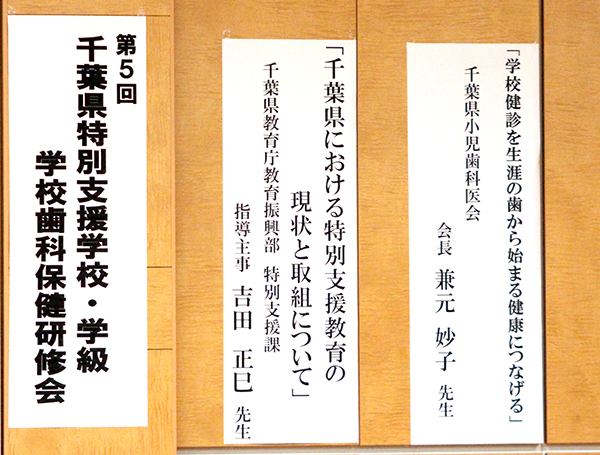 第5回
千葉県特別支援学校・学級
学校歯科保健研修会
「千葉県における特別支援教育の
現状と取組について」
千葉県教育庁教育振興部 特別支援課
指導主事 吉田 正巳 先生
「学校健診を生涯の歯から始まる健康につなげる」
千葉県小児歯科医会
会長 兼元 妙子 先生